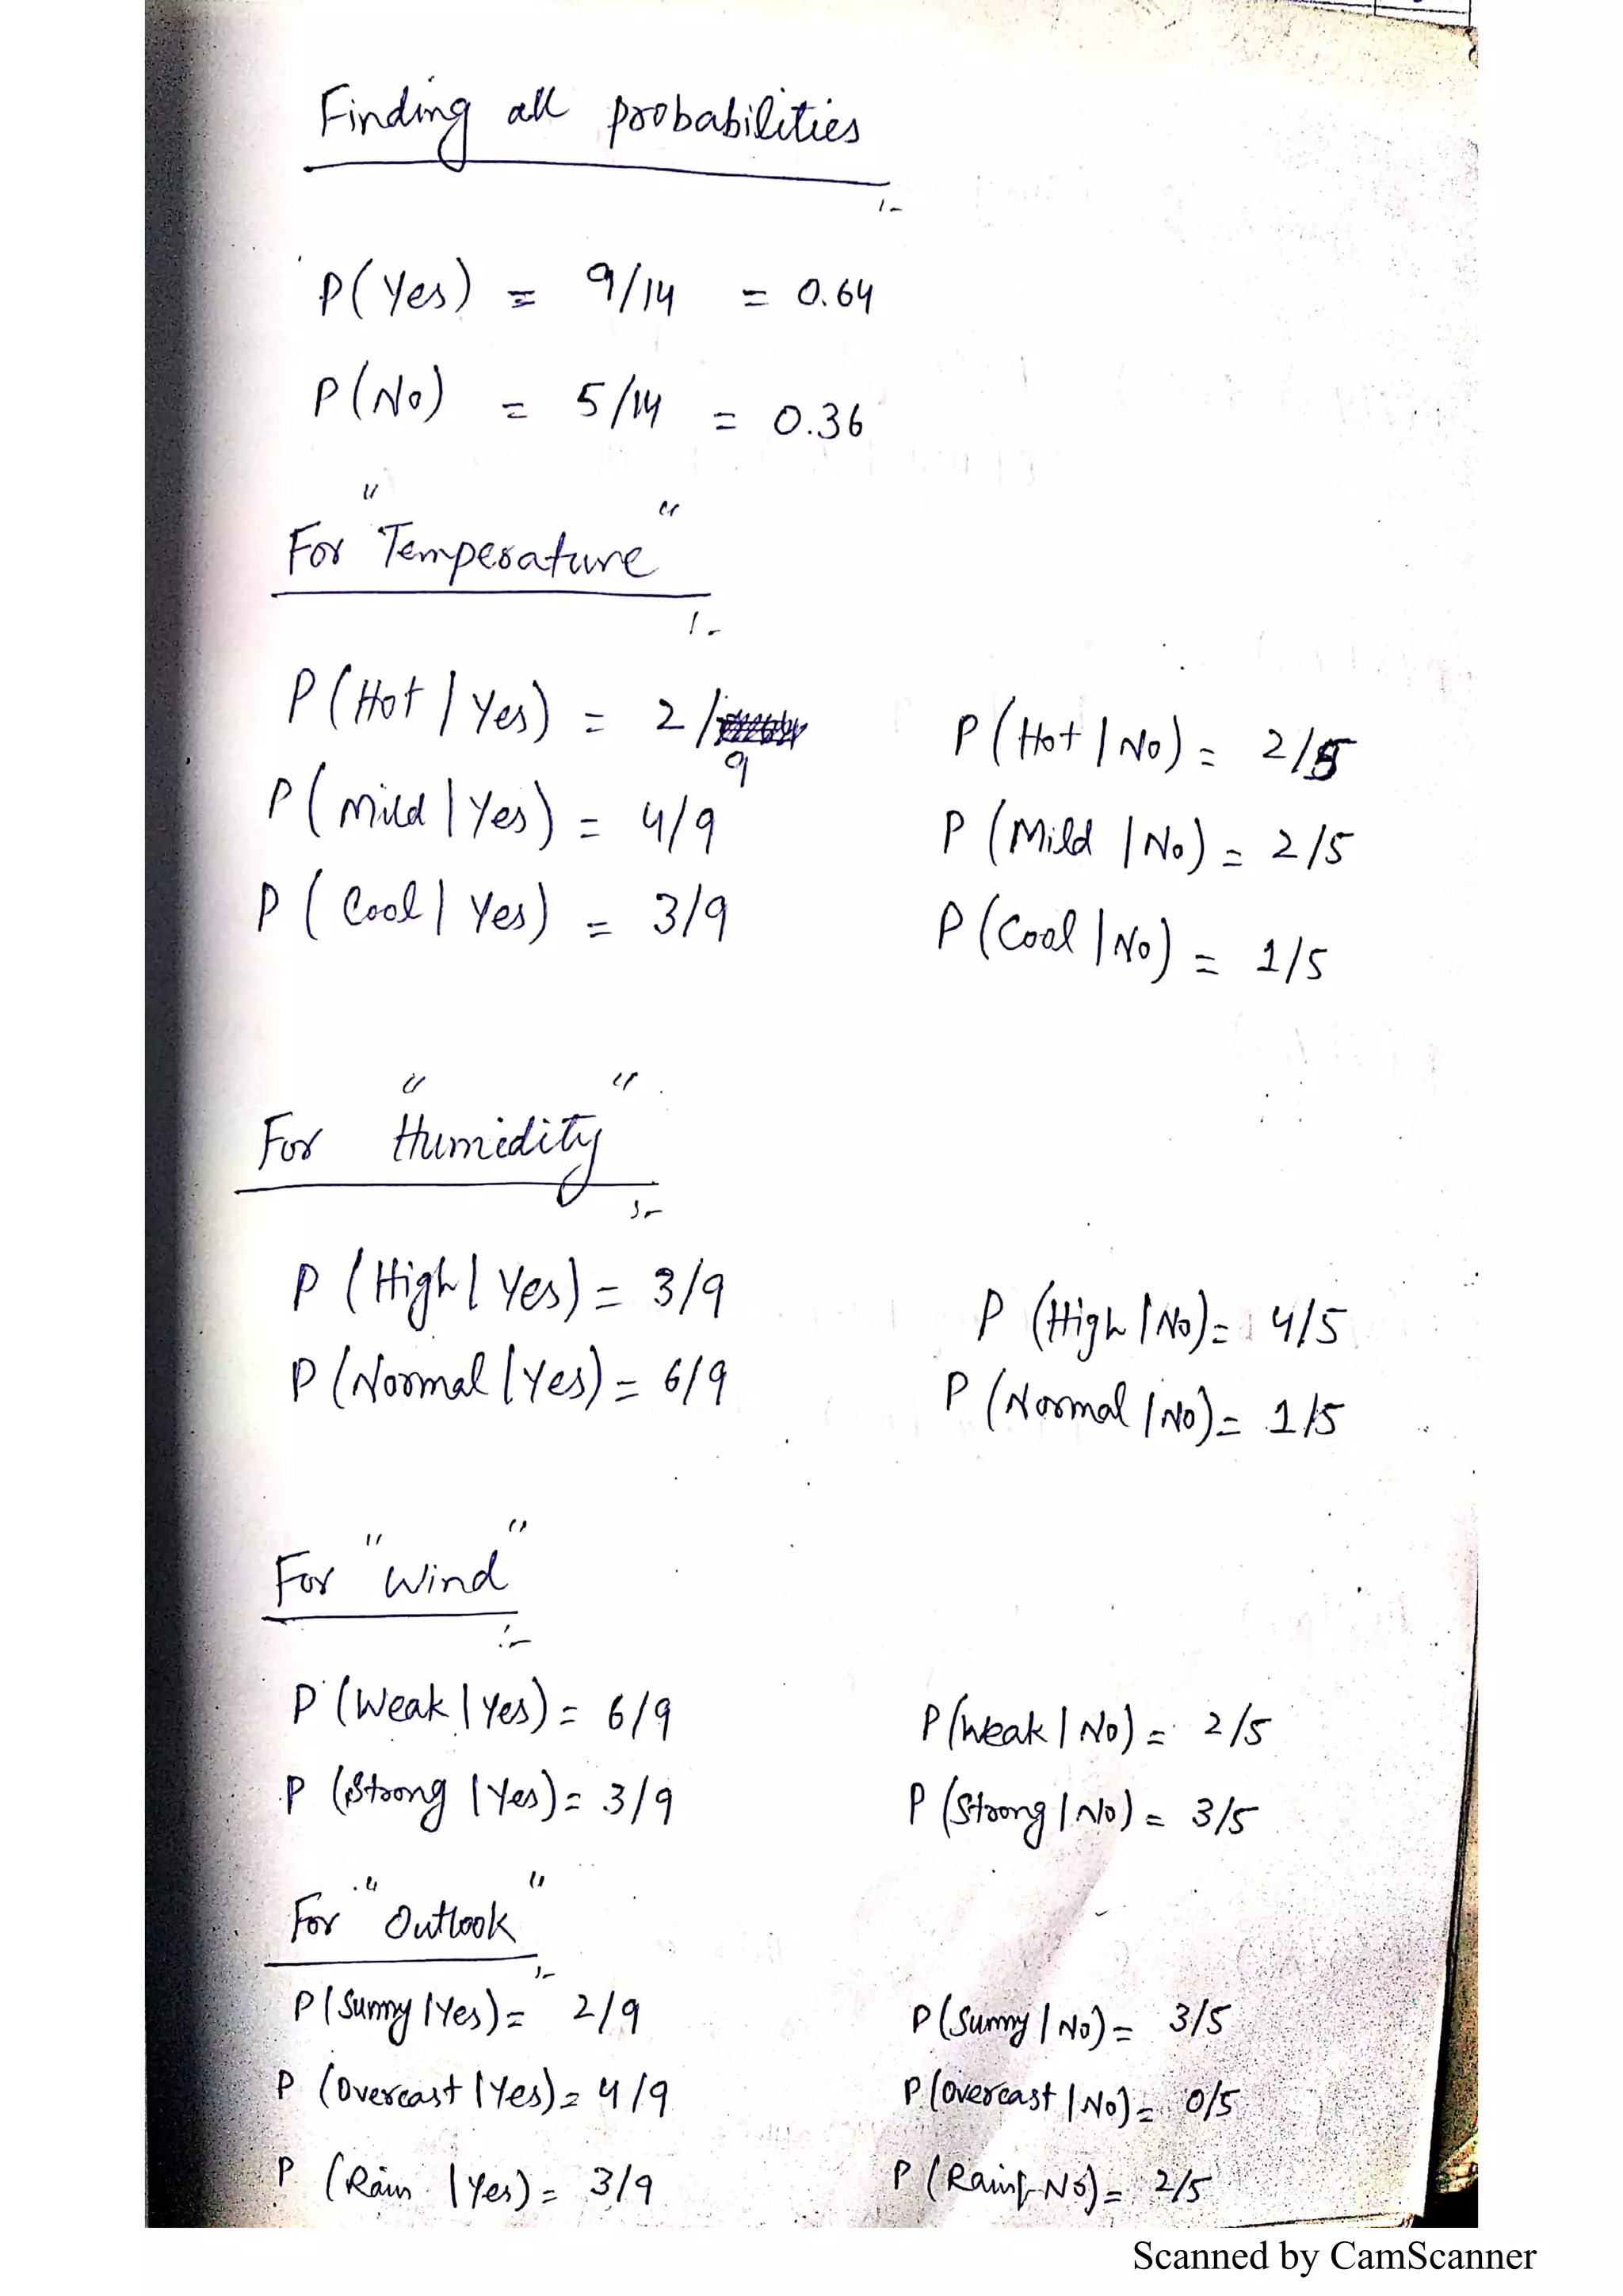 Finding all probabilities :-
P(Yes) = 9/14 = 0.64
P(No) = 5/14 = 0.36
For "Temperature" :-
P(Hot | Yes) = 2/9
P(Hot | No) = 2/5
P(Mild | Yes) = 4/9
P(Mild | No) = 2/5
P(Cool | Yes) = 3/9
P(Cool | No) = 1/5
For "Humidity" :-
P(High | Yes) = 3/9
P(High | No) = 4/5
P(Normal | Yes) = 6/9
P(Normal | No) = 1/5
For "Wind" :-
P(Weak | Yes) = 6/9
P(Weak | No) = 2/5
P(Strong | Yes) = 3/9
P(Strong | No) = 3/5
For "Outlook" :-
P(Sunny | Yes) = 2/9
P(Sunny | No) = 3/5
P(Overcast | Yes) = 4/9
P(Overcast | No) = 0/5
P(Rain | Yes) = 3/9
P(Rain | No) = 2/5
Scanned by CamScanner